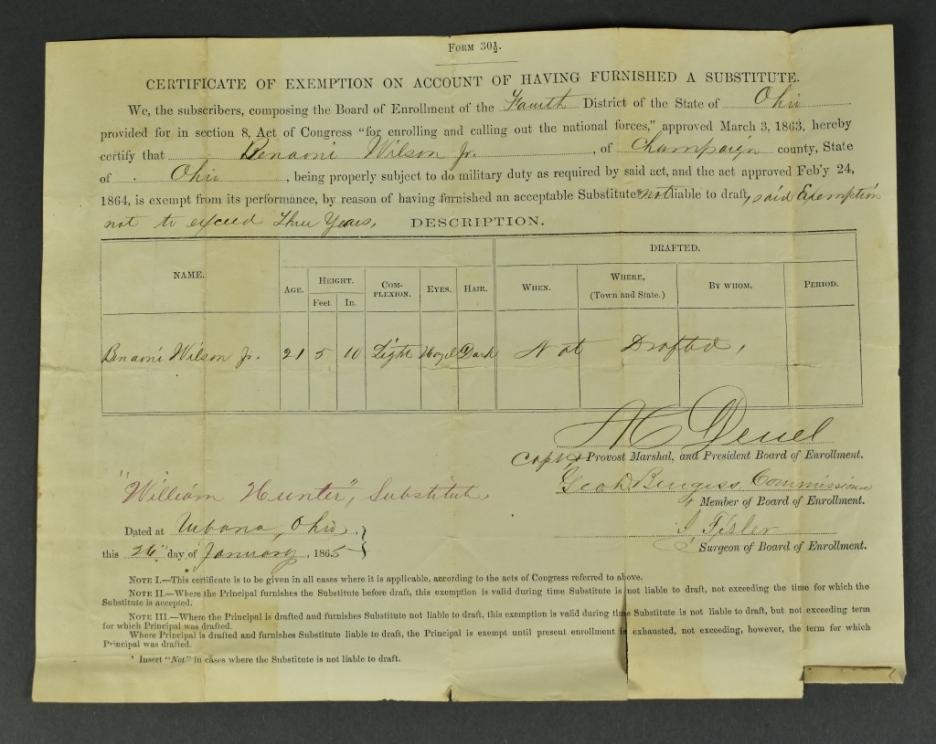 FORM 30½.
CERTIFICATE OF EXEMPTION ON ACCOUNT OF HAVING FURNISHED A SUBSTITUTE.
We, the subscribers, composing the Board of Enrollment of the Fourth District of the State of Ohio
provided for in section 8, Act of Congress "for enrolling and calling out the national forces," approved March 3, 1863, hereby
certify that Benaoni Wilson Jr. , of Champaign county, State
of Ohio , being properly subject to do military duty as required by said act, and the act approved Feb'y 24,
1864, is exempt from its performance, by reason of having furnished an acceptable Substitute * not liable to draft, said Exemption
not to exceed Three Years, DESCRIPTION.
DRAFTED.
NAME. AGE. HEIGHT. COM-PLEXION. EYES. HAIR. WHEN. WHERE, (Town and State.) BY WHOM. PERIOD.
Feet. In.
Benaoni Wilson Jr. 21 5 10 Light Hazel Dark Not Drafted,
Capt & Provost Marshal, and President Board of Enrollment.
"William Hunter", Substitute Commissioner
Member of Board of Enrollment.
Dated at Urbana, Ohio.
this 26" day of January, 1865
Surgeon of Board of Enrollment.
NOTE I.—This certificate is to be given in all cases where it is applicable, according to the acts of Congress referred to above.
NOTE II.—Where the Principal furnishes the Substitute before draft, this exemption is valid during time Substitute is not liable to draft, not exceeding the time for which the
Substitute is accepted.
NOTE III.—Where the Principal is drafted and furnishes Substitute not liable to draft, this exemption is valid during time Substitute is not liable to draft, but not exceeding term
for which Principal was drafted.
Where Principal is drafted and furnishes Substitute liable to draft, the Principal is exempt until present enrollment is exhausted, not exceeding, however, the term for which
Principal was drafted.
* Insert "Not" in cases where the Substitute is not liable to draft.